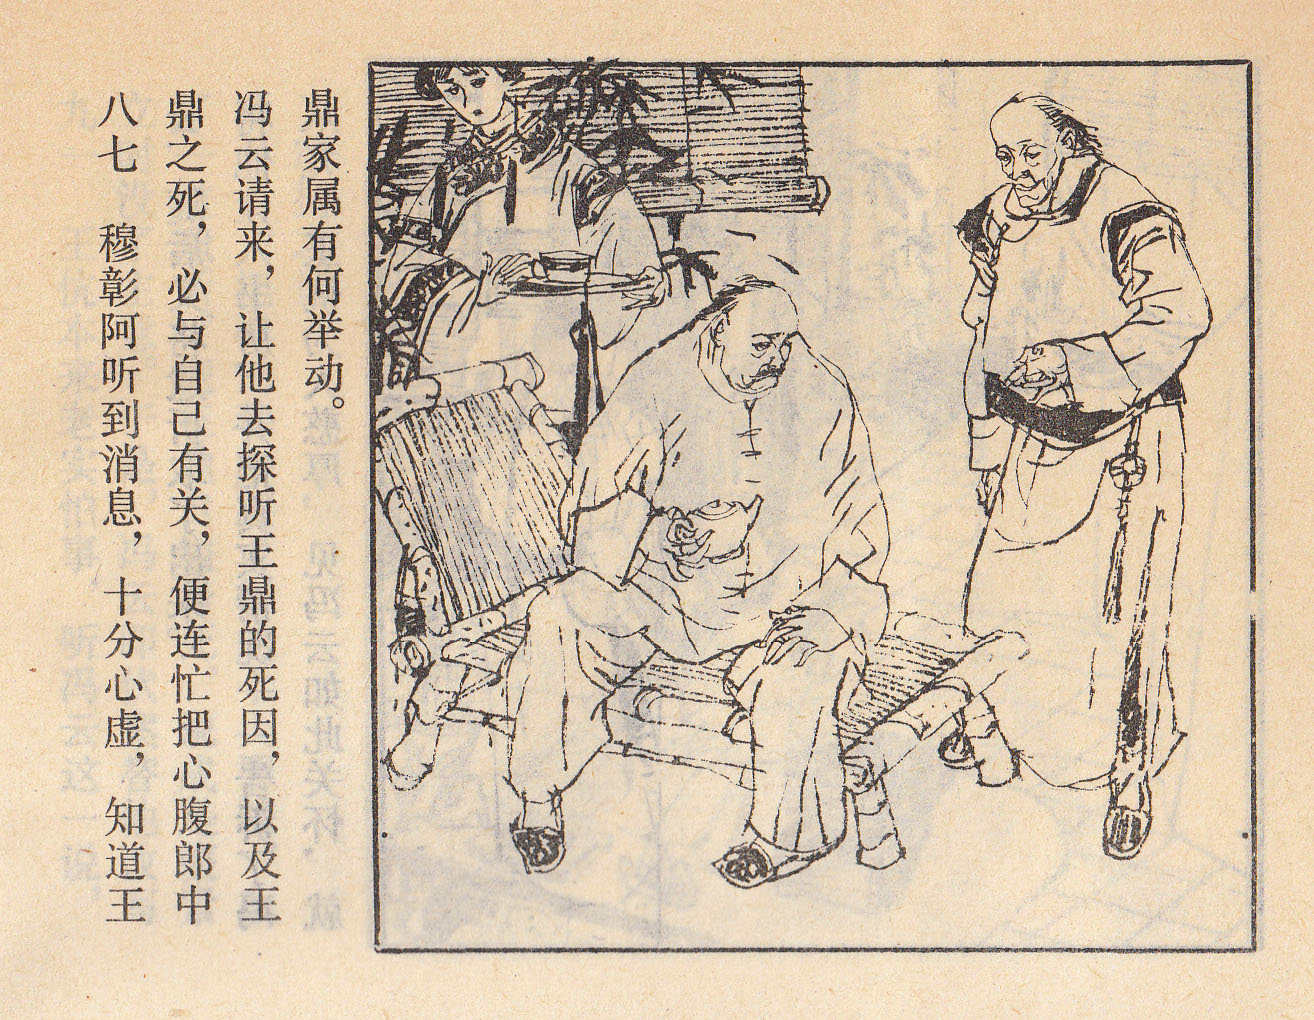 八七　穆彰阿听到消息，十分心虚，知道王
鼎之死，必与自己有关，便连忙把心腹郎中
冯云请来，让他去探听王鼎的死因，以及王
鼎家属有何举动。